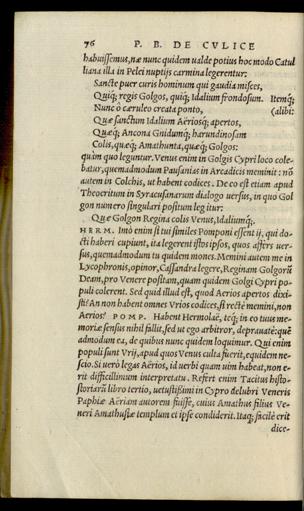 76 P. B. DE CVLICE
habuissemus, næ nunc quidem ualde potius hoc modo Catul
liana illa in Pelei nuptijs carmina legerentur:
Sancte puer curis hominum qui gaudia misces,
Quiq́; regis Golgos, quiq́; Idalium frondosum. Itemq́;
Nunc ò cæruleo creata ponto, (alibi:
Quæ sanctum Idalium Aëriosq́; apertos,
Quæq́; Ancona Gnidumq́; harundinosam
Colis, quæq́; Amathunta, quæq́; Golgos:
quàm quo leguntur. Venus enim in Golgis Cypri loco cole-
batur, quemadmodum Pausanias in Arcadicis meminit: nō
autem in Colchis, ut habent codices. De co est etiam apud
Theocritum in Syracusanarum dialogo uersus, in quo Gol
gon numero singulari positum legitur:
Quæ Golgon Regina colis Venus, Idaliumq́;.
HERM. Imò enim si tui similes Pomponi essent ij, qui do-
cti haberi cupiunt, ita legerent istos ipsos, quos affers uer-
sus, quemadmodum tu quidem mones. Memini autem me in
Lycophronis, opinor, Cassandra legere, Reginam Golgorū
Deam, pro Venere positam, quam quidem Golgi Cypri po
puli colerent. Sed quid illud est, quod Aerios apertos dixi-
sti? An non habent omnes Vrios codices, si rectè memini, non
Aerios? POMP. Habent Hermolaë, teq́; in eo tuus me-
moriæ sensus nihil fallit, sed ut ego arbitror, deprauatè: quē
admodum ea, de quibus nunc quidem loquimur. Qui enim
populi sunt Vrij, apud quos Venus culta fuerit, equidem ne-
scio. Si uerò legas Aërios, id uerbi quam uim habeat, non e-
rit difficillimum interpretatu. Refert enim Tacitus histo-
storiarū libro tertio, uetustißimi in Cypro delubri Veneris
Paphiæ Aëriam autorem fuisse, cuius Amathus filius Ve-
neri Amathusiæ templum et ipse condiderit. Itaq́; facilè erit
dice-